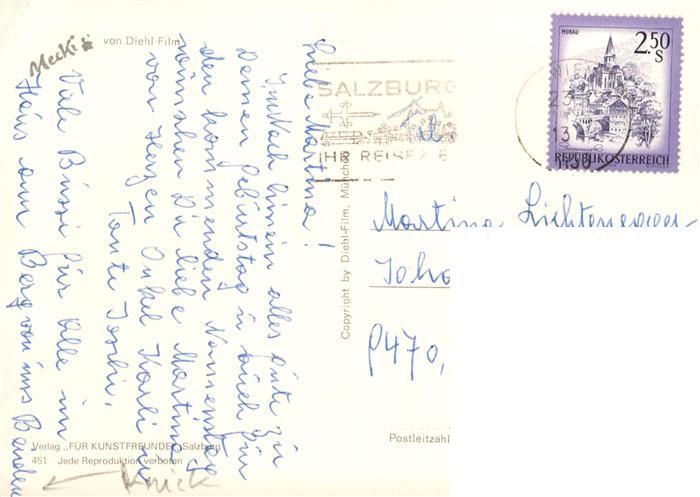 Mecki
von Diehl-Film
Liebe Martina!
Im Nach hinein alles Gute zu
Deinen Geburtstag u auch für
den kommenden Namenstag
wünschen Dir liebe Martina
von Herzen Onkel Karli u
Tante Joschi.
Viele Bussi für Alle im
Haus am Berg von uns Beiden
Verlag „FÜR KUNSTFREUNDE“ Salzburg
451 Jede Reproduktion verboten
Knick
Copyright by Diehl-Film, München
SALZBURG
IHR REISEZ
WIEN
1150
MURAU
2.50
S
REPUBLIK ÖSTERREICH
Martina Lichtenegger
Joha
8470,
Postleitzahl